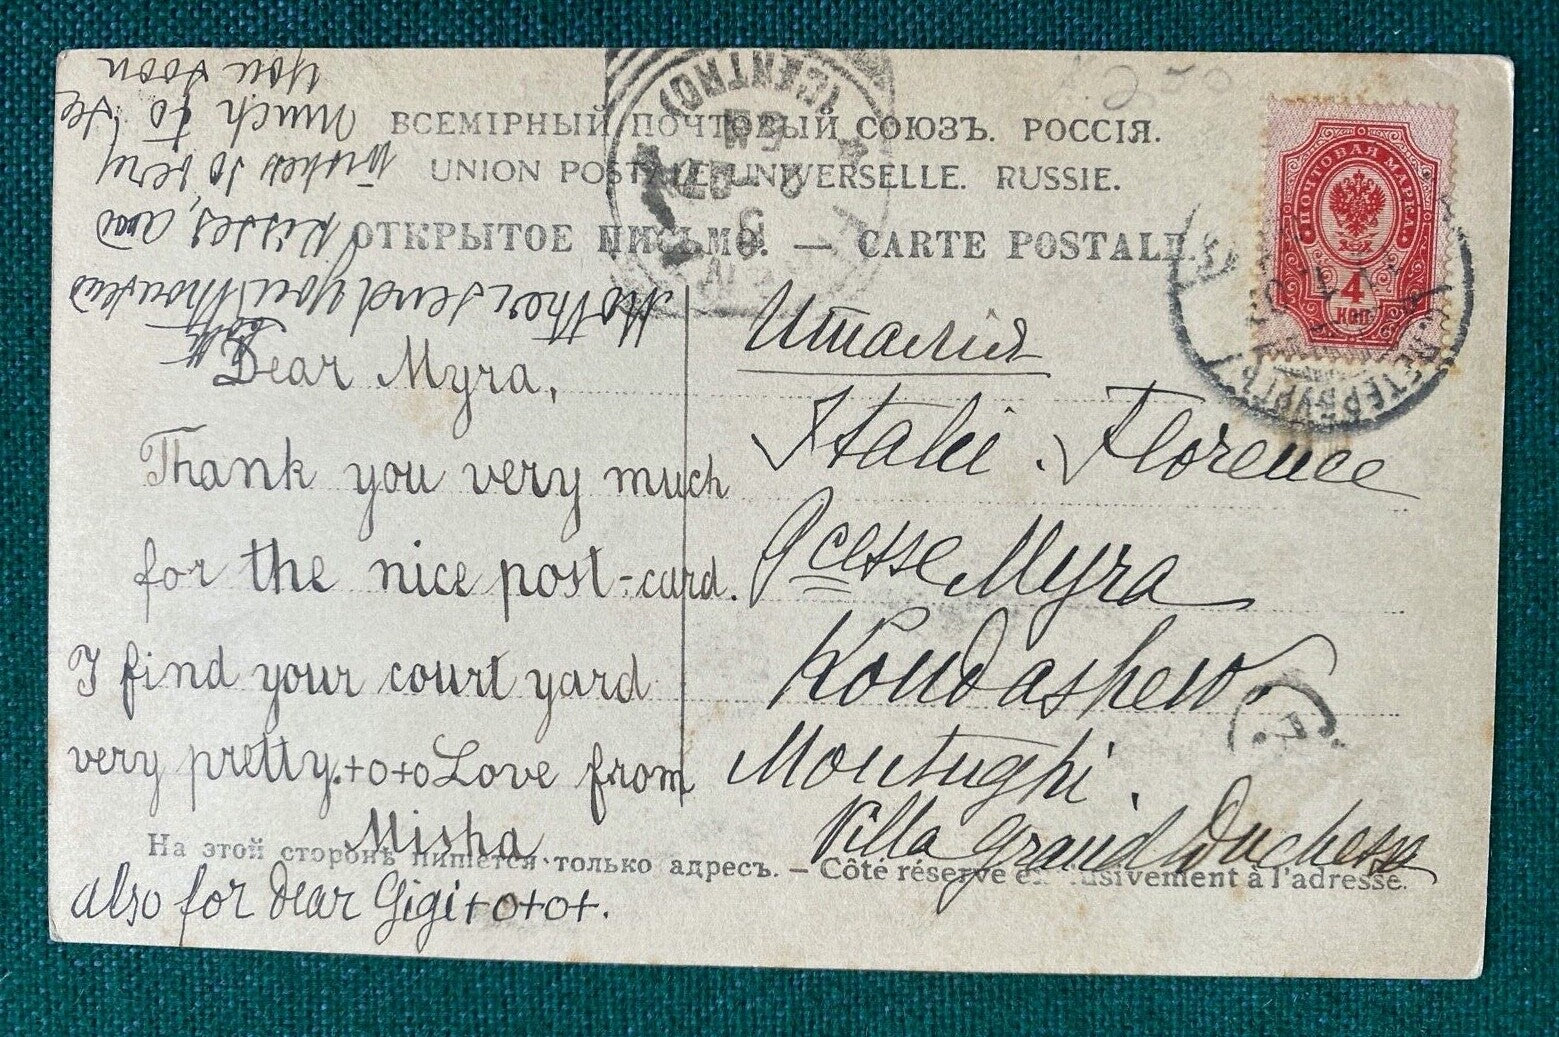 ВСЕМІРНЫЙ ПОЧТОВЫЙ СОЮЗЪ. РОССІЯ.
UNION POSTALE UNIVERSELLE. RUSSIE.
ОТКРЫТОЕ ПИСЬМО. — CARTE POSTALE.
ПОЧТОВАЯ МАРКА
4
КОП.
(CENTRO)
С. ПЕТЕРБУРГЪ
Dear Myra,
Thank you very much
for the nice post-card.
I find your court yard
very pretty.+o+o Love from
Misha
also for dear Gigi+o+o+.
Mother send you thousands
kisses, and
wishes so very
much to see
you soon
Италія
Italie. Florence
Pcesse Myra
Kondashew.
Montughi.
Villa Grand Duchessa
На этой сторонѣ пишется только адресъ. — Côté réservé exclusivement à l'adresse.